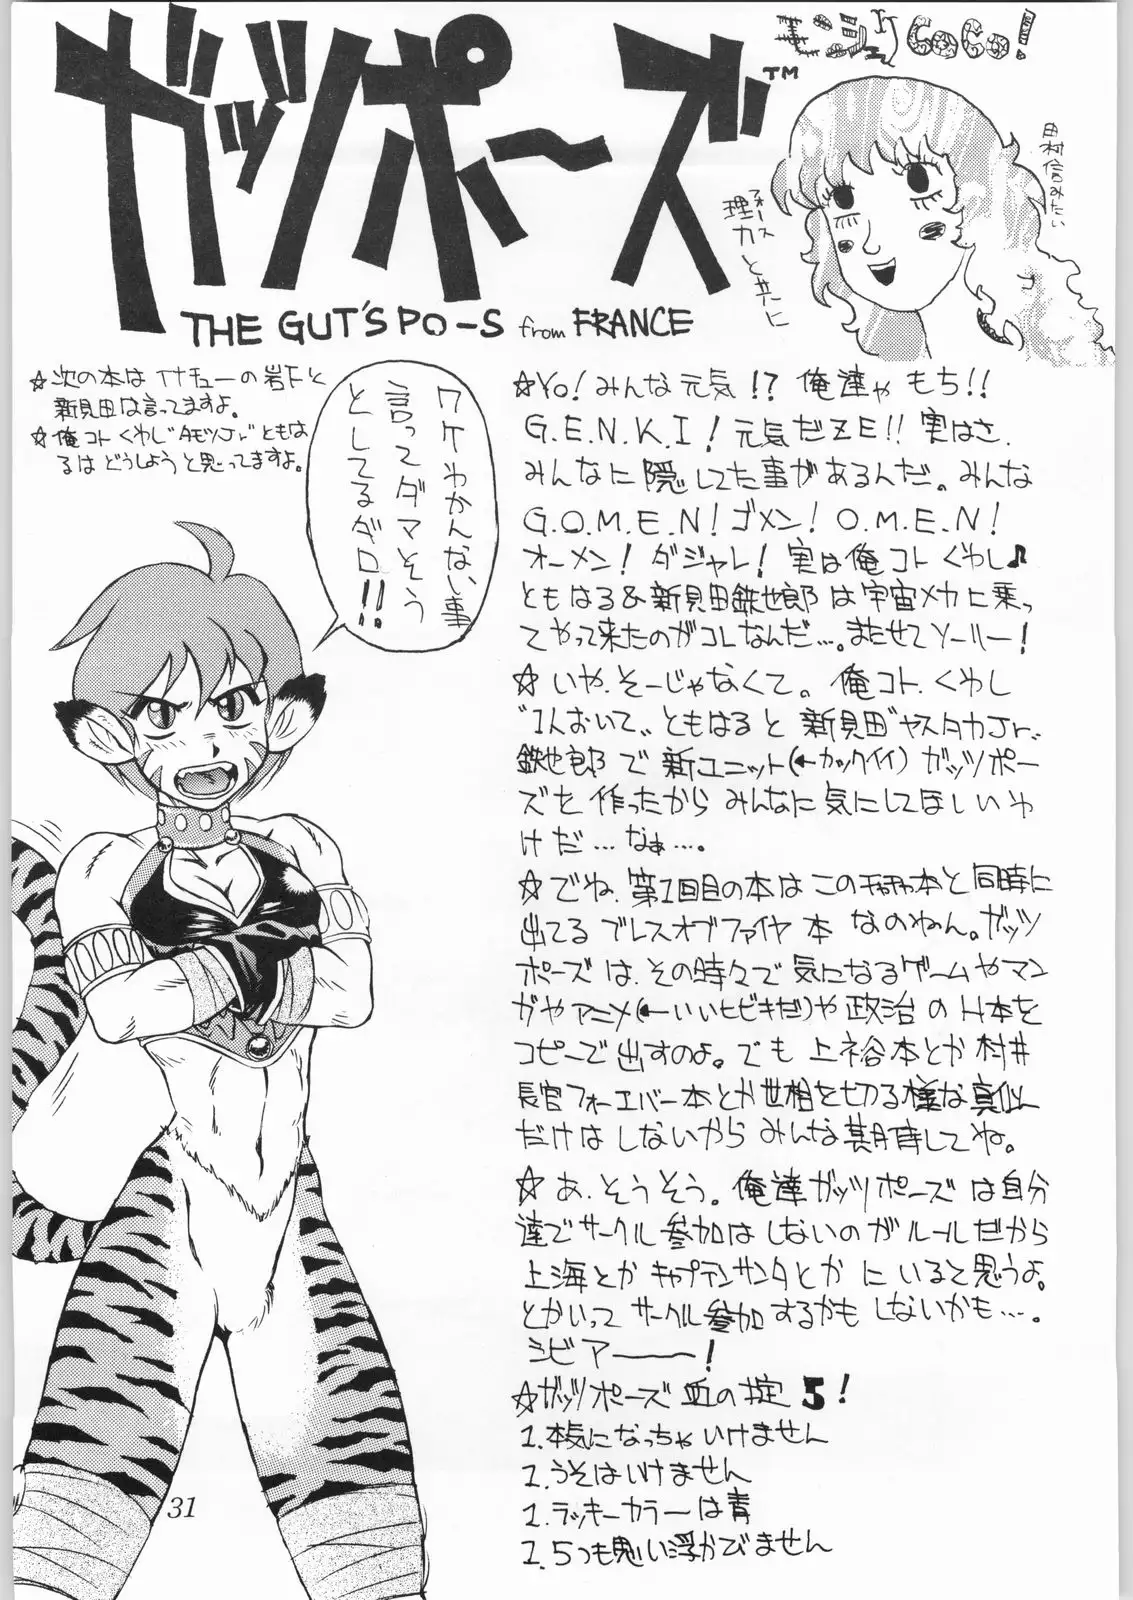 ガッツポーズ™
モンジャCoCo!
田村信みたい
理力とともに
フォース
THE GUT'S PO-S from FRANCE
☆次の本はイナチューの岩下と
新見田は言ってますよ。
☆俺コトくわし"AモツJr"ともは
るはどうしようと思ってますよ。
ワケわかんない事
言ってダマそう
としてるダロ!!
☆Yo!みんな元気!?俺達ゃもち!!
G.E.N.K.I!元気だZE!!実はさ、
みんなに隠してた事があるんだ。みんな
G.O.M.E.N!ゴメン!O.M.E.N!
オーメン!ダジャレ!実は俺コトくわし♪
ともはる&新見田鉄也郎は宇宙メカに乗っ
てやって来たのがコレなんだ…。またせてソーリー!
☆いや、そーじゃなくて。俺コト、くわし
"1人おいて"ともはると新見田"ヤスタカJr"
鉄也郎で新ユニット(←カックイイ)ガッツポー
ズを作ったからみんなに気にしてほしいわ
けだ…なぁ…。
☆でね、第1回目の本はこの本と同時に
出てるブレスオブファイヤ本なのねん。ガッツ
ポーズは、その時々で気になるゲームやマン
ガやアニメ(←いいヒビキだ)や政治のH本を
コピーで出すのよ。でも上祐本とか村井
長官フォーエバー本とか世相を切る様な真似
だけはしないからみんな期待してね。
☆あ、そうそう。俺達ガッツポーズは自分
達でサークル参加はしないのがルールだから
上海とかキャプテンサンタとかにいると思うよ。
とかいってサークル参加するかもしないかも…。
シビアーー!
☆ガッツポーズ血の掟5!
1.本気になっちゃいけません
1.うそはいけません
1.ラッキーカラーは青
1.5つも思い浮かびません
31